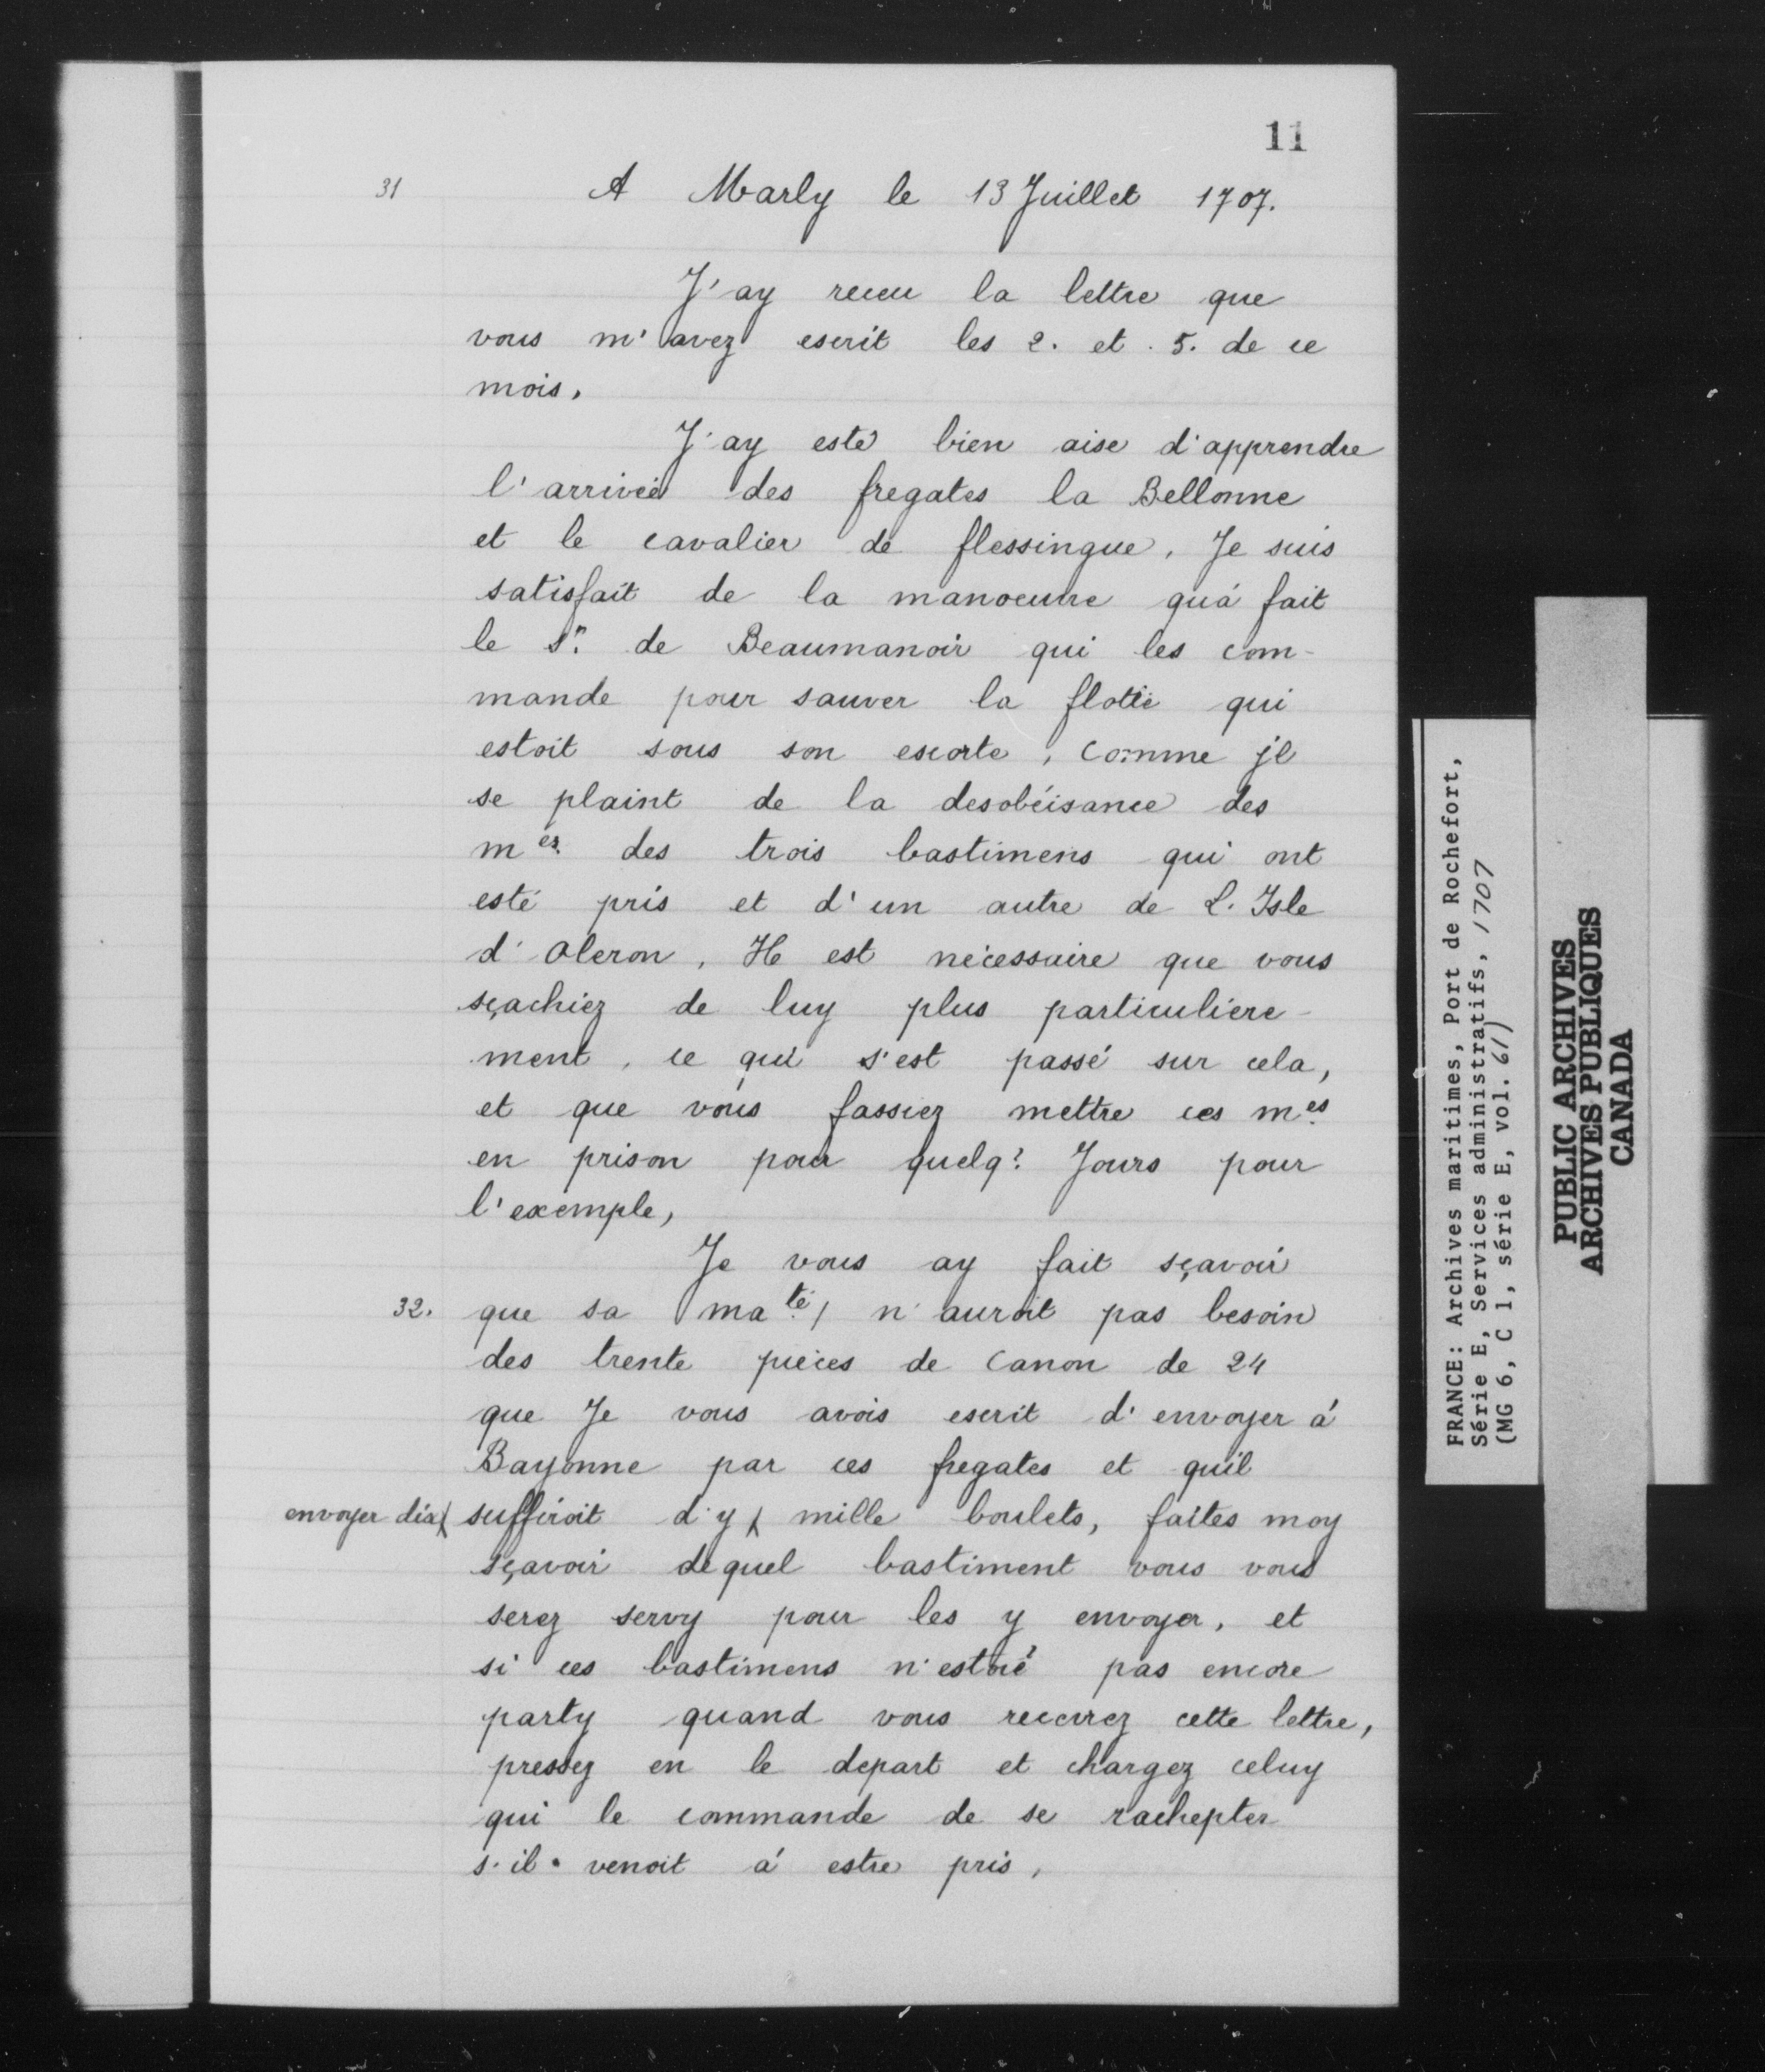 11
31
A Marly le 13 Juillet 1707.
J'ay receu la lettre que
vous m'avez escrit les 2. et. 5. de ce
mois.
J'ay esté bien aise d'apprendre
l'arrivée des fregates la Bellonne
et le cavalier de flessingue. Je suis
satisfait de la manoeuvre qu'a fait
le Sr. de Beaumanoir qui les com-
mande pour sauver la flotte qui
estoit sous son escorte, comme jl
se plaint de la desobéisance des
mes. des trois bastimens qui ont
esté pris et d'un autre de L. Isle
d'oleron. Il est nécessaire que vous
sçachiez de luy plus particuliere-
ment, ce qui s'est passé sur cela,
et que vous fassiez mettre ces mes.
en prison pour quelq? Jours pour
l'exemple,
Je vous ay fait sçavoir
32. que sa maté, n'auroit pas besoin
des trente pièces de canon de 24
que Je vous avois escrit d'envoyer á
Bayonne par ces fregates et quil
envoyer dix suffiroit d'y mille boulets, faites moy
sçavoir de quel bastiment vous vous
serez servy pour les y envoyer, et
si ces bastimens n'estoié pas encore
party quand vous recevrez cette lettre,
pressez en le depart et chargez celuy
qui le commande de se rachepter
s'il venoit á estre pris,
FRANCE: Archives maritimes, Port de Rochefort,
Série E, Services administratifs, 1707
(MG 6, C 1, série E, vol. 611)
PUBLIC ARCHIVES
ARCHIVES PUBLIQUES
CANADA